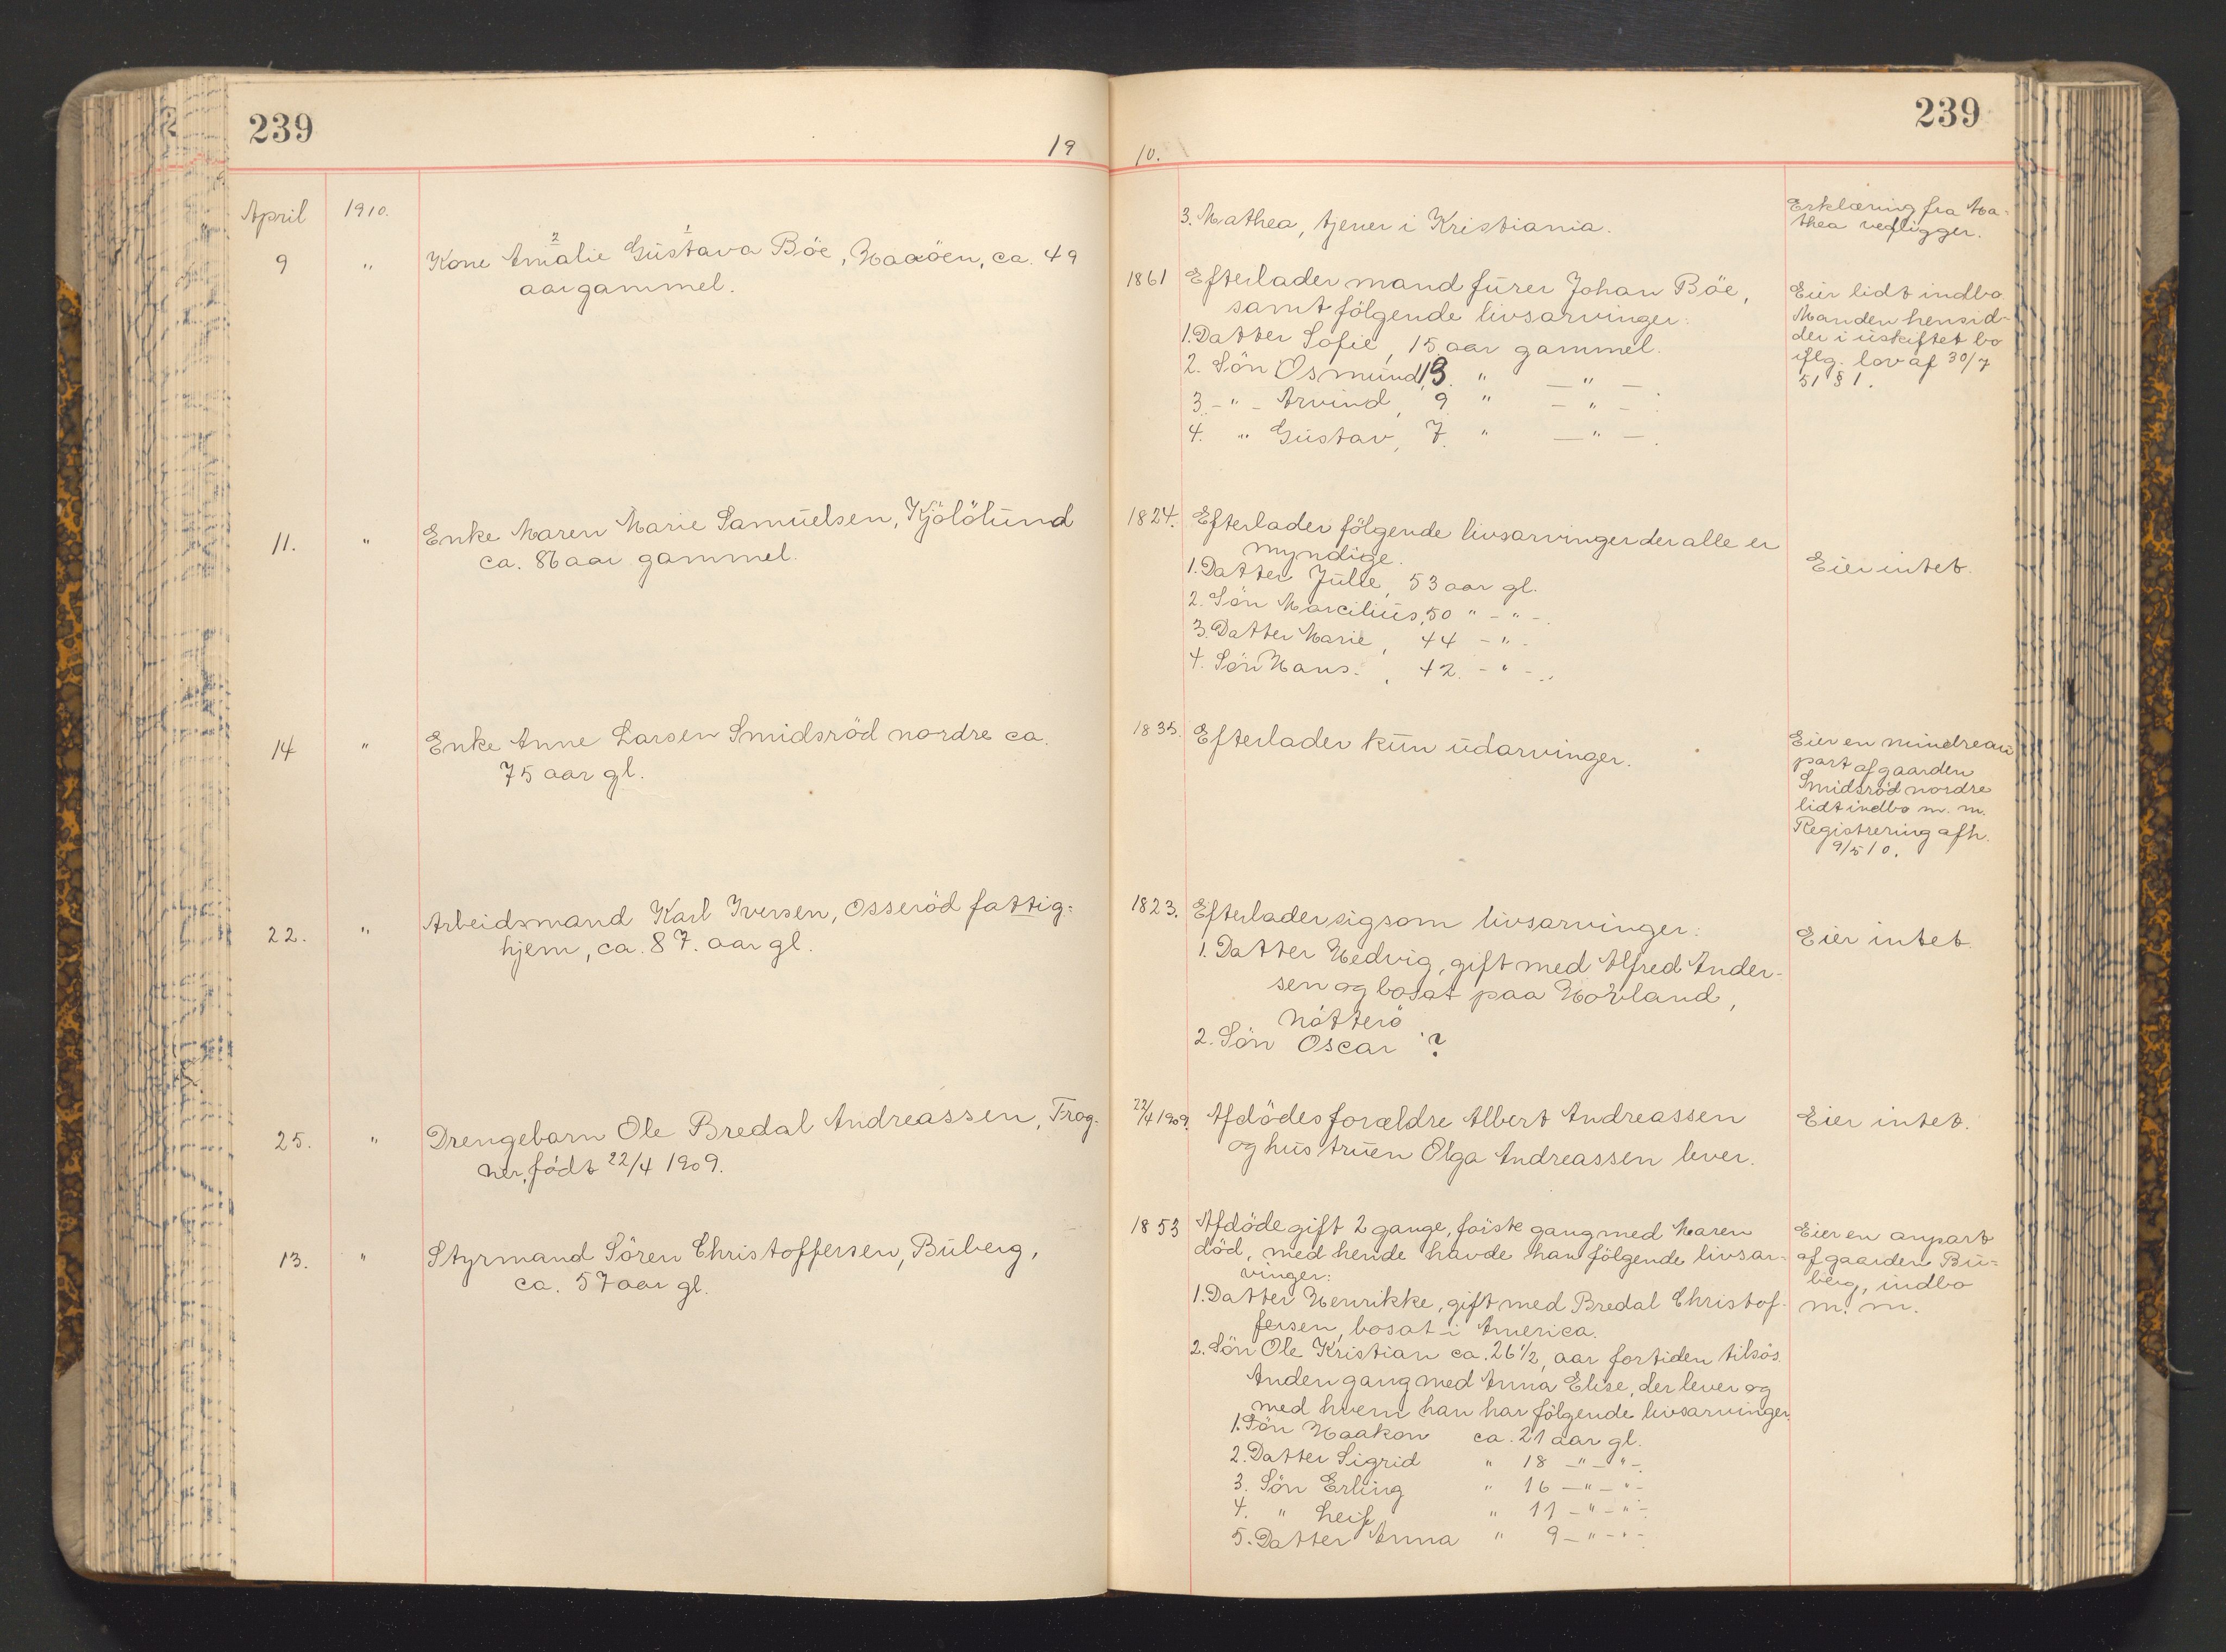 239
19
April
1910.
2 1
9 " Kone Amalie Gustava Böe, Haaöen, ca. 49
aar gammel.
11. " Enke Maren Marie Samuelsen, Kjölölund
ca. 86 aar gammel.
14 " Enke Anne Larsen Smidsröd nordre ca.
75 aar gl.
22. " Arbeidsmand Karl Iversen, Osseröd fattig=
hjem, ca. 87. aar gl.
25. " Drengebarn Ole Bredal Andreassen, Trog-
ner, födt 22/4 1909.
13. " Styrmand Sören Christoffersen, Buberg,
ca. 57 aar gl.
239
10.
3. Mathea, tjener i Kristiania.
Erklæring fra Ma-
thea vedligger.
1861 Efterlader mand furer Johan Böe,
samt fölgende livsarvinger:
1. Datter Sofie, 15 aar gammel.
2. Sön Osmund, 13. " — " —
3. - " - Arvind, 9 " — " — .
4. " Gustav, 7. " — " — .
Eier lidt indbo.
Manden hensid-
der i uskiftet bo
iflg. lov af 30/7
51 § 1.
1824. Efterlader fölgende livsarvinger der alle er
myndige.
1. Datter Julle, 53 aar gl.
2. Sön Marcilius, 50 " - " -.
3. Datter Marie, 44 - " -
4. Sön Hans. , 42. - " - .
Eier intet.
1835. Efterlader kun udarvinger.
Eier en mindre an
part af gaarden
Smidsröd nordre
lidt indbo m. m.
Registrering afh.
9/5 10.
1823. Efterlader sig som livsarvinger:
1. Datter Hedvig, gift med Alfred Ander-
sen og bosat paa Hovland,
Nötterö
2. Sön Oscar ?
Eier intet.
22/4 1909. Afdödes forældre Albert Andreassen
og hustruen Olga Andreassen lever.
Eier intet.
1853 Afdöde gift 2 gange, förste gang med Maren
död, med hende havde han fölgende livsar-
vinger:
1. Datter Henrikke, gift med Bredal Christof-
fersen, bosat i America.
2. Sön Ole Kristian ca. 26 1/2, aar fortiden tilsös.
Anden gang med Anna Elise, der lever og
med hvem han har fölgende livsarvinger.
1. Sön Haakon ca. 21 aar gl.
2. Datter Sigrid " 18 - " - " -.
3. Sön Erling " 16 - " - " -
4. " Leif " 11 - " - " -
5. Datter Anna " 9 - " - " -.
Eier en anpart
af gaarden Bu=
berg, indbo
m. m.